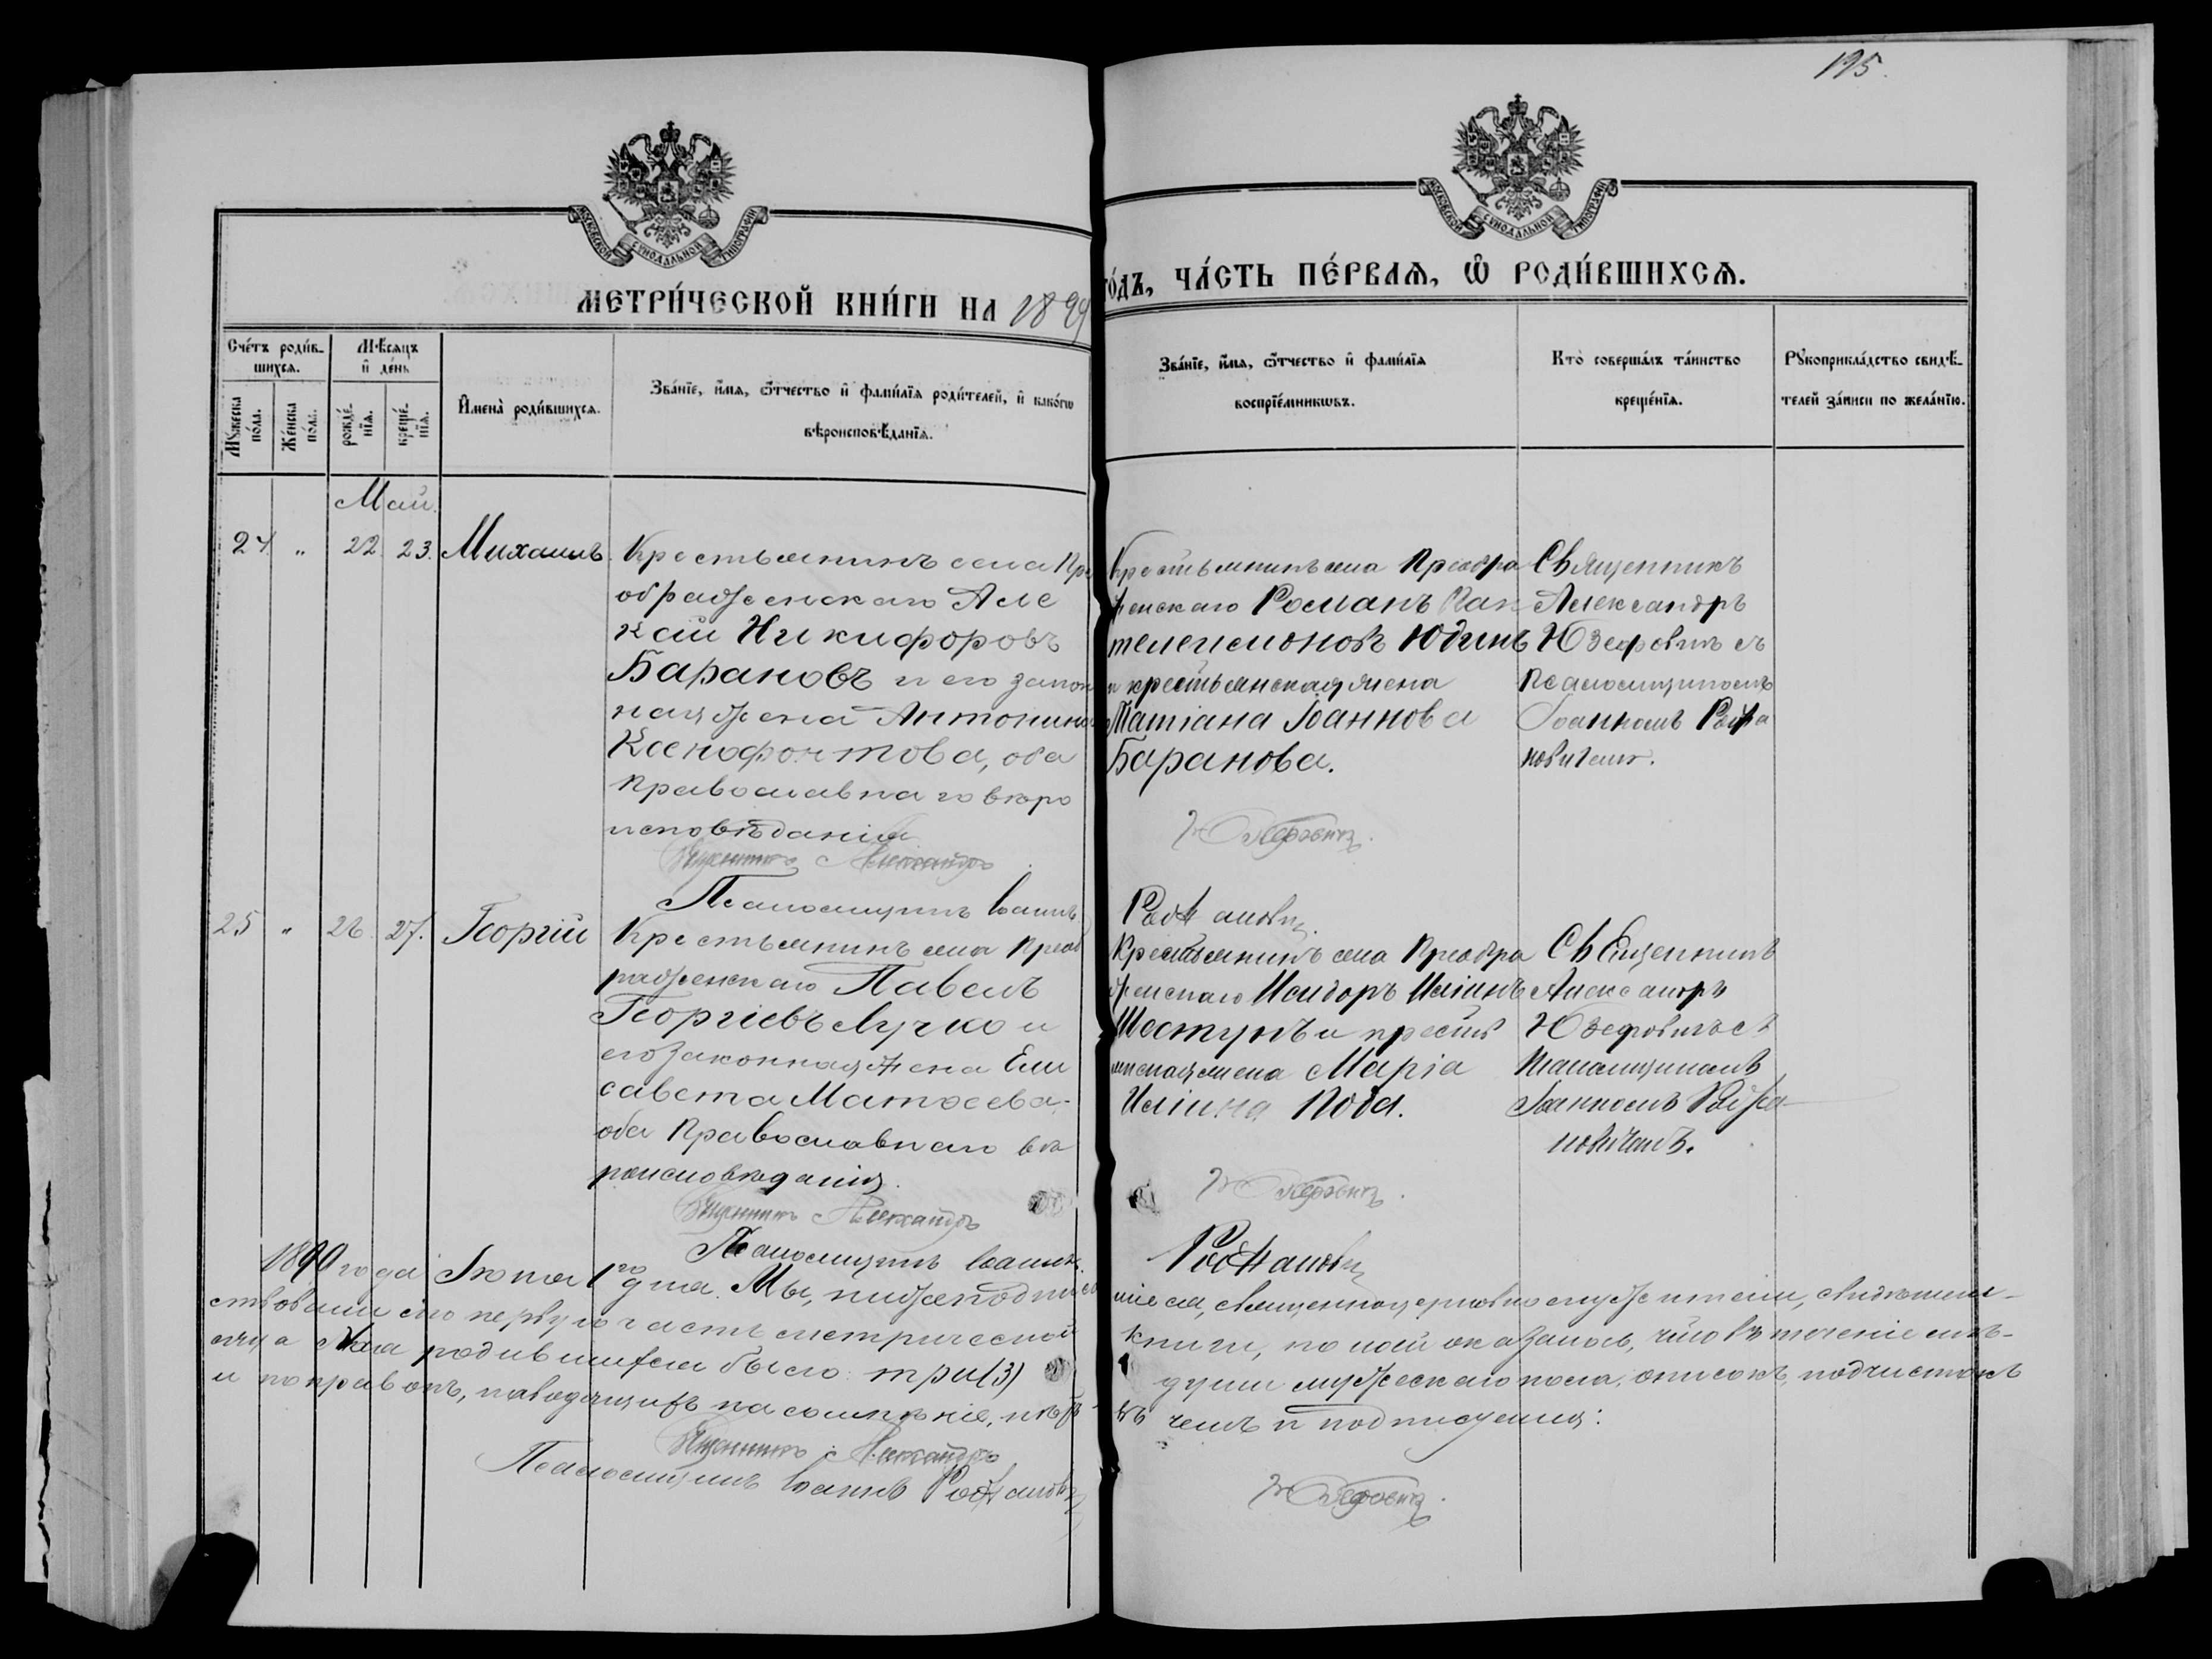 195.
МОСКОВСКОЙ СѴНОДАЛЬНОЙ ТИПОГРАФІИ
МОСКОВСКОЙ СѴНОДАЛЬНОЙ ТИПОГРАФІИ
МЕТРИ́ЧЕСКОЙ КНИ́ГИ НА 1899
го́дъ, ЧА́СТЬ ПЕ́РВАЯ, Ѡ҆ РОДИ́ВШИХСЯ.
Сче́тъ роди́в-
шихся.
Мꙋ́жеска по́ла.
Же́нска по́ла.
Мѣ́сяцъ
и҆ де́нь
рожде́-
нїя.
креще́-
нїя.
И҆мена̀ роди́вшихся.
Зва́нїе, и҆́мя, ѻ҆́тчество и҆ фами́лїя роди́телей, и҆ како́гѡ
вѣроисповѣ́данїя.
Зва́нїе, и҆́мя, ѻ҆́тчество и҆ фами́лїя
воспрїе́мникѡвъ.
Кто̀ соверша́лъ та́инство
креще́нїя.
Рꙋкоприкла́дство свидѣ́-
телей за́писи по жела́нїю.
Май.
24. " 22. 23. Михаилъ.
Крестьянинъ села Пре
ображенскаго Але
ксій Никифоровъ
Барановъ и его закон
ная жена Антонина
Ксенофонтова, оба
Православнаго вѣро
исповѣданія
Священникъ Александръ
Псаломщикъ Іоаннъ
Крестьянинъ села Преобра
женскаго Романъ Пан
телеимоновъ Юдинъ
и крестьянская жена
Татіана Іоаннова
Баранова.
Юзефовичъ.
Священникъ
Александръ
Юзефовичъ съ
Псаломщикомъ
Іоанномъ
новичемъ.
25 " 26. 27. Георгій
Крестьянинъ села Преоб
раженскаго Павелъ
Георгіевъ Лучко и
его законная жена Ели
савета Матѳеева,
оба Православнаго вѣ
роисповѣданія.
Священникъ Александръ
Псаломщикъ Іоаннъ
Крестьянинъ села Преобра
женскаго Исидоръ Иліинъ
Шестунъ и кресть
янская жена Марія
Иліина
Юзефовичъ.
Священникъ
Александръ
Юзефовичъ съ
Псаломщикомъ
Іоанномъ
новичемъ.
1899 года Іюня 1го дня. Мы, нижеподписав
шіеся, священноцерковнослужители, свидѣтель-
ствовали сію первую часть метрической
книги, по коей оказалось, что въ теченіе мѣ-
сяца Мая родившихся было: три (3)
души мужескаго пола, описокъ, подчистокъ
и поправокъ, наводящихъ на сомнѣніе, нѣтъ
въ чемъ и подписуемся:
Священникъ Александръ
Юзефовичъ.
Псаломщикъ Іоаннъ